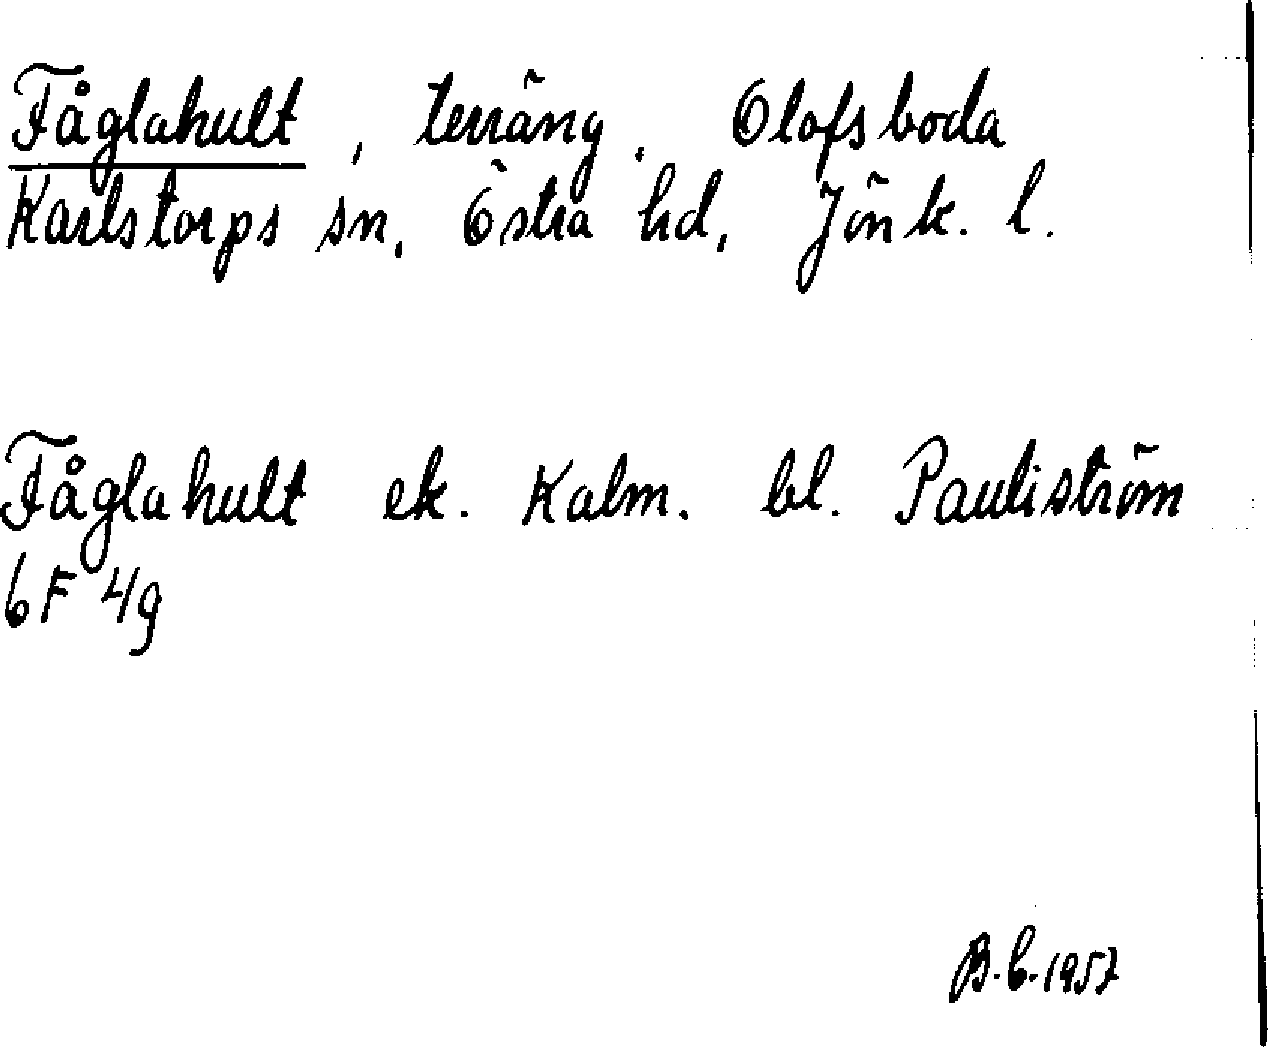 Fåglahult, terräng. Olofsboda
Karlstorps sn, Östra hd, Jönk. l.
Fåglahult ek. Kalm. bl. Pauliström
6F 4g
B.E. 1957